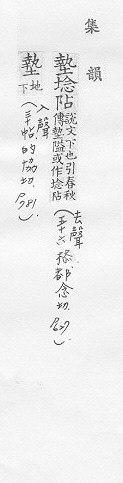 集韻
墊埝阽 說文下也引春秋
傳墊隘或作埝阽
(去聲 五十六㮇 都念切. 627).
墊 地下
(入聲 三十帖 的協切. 781).